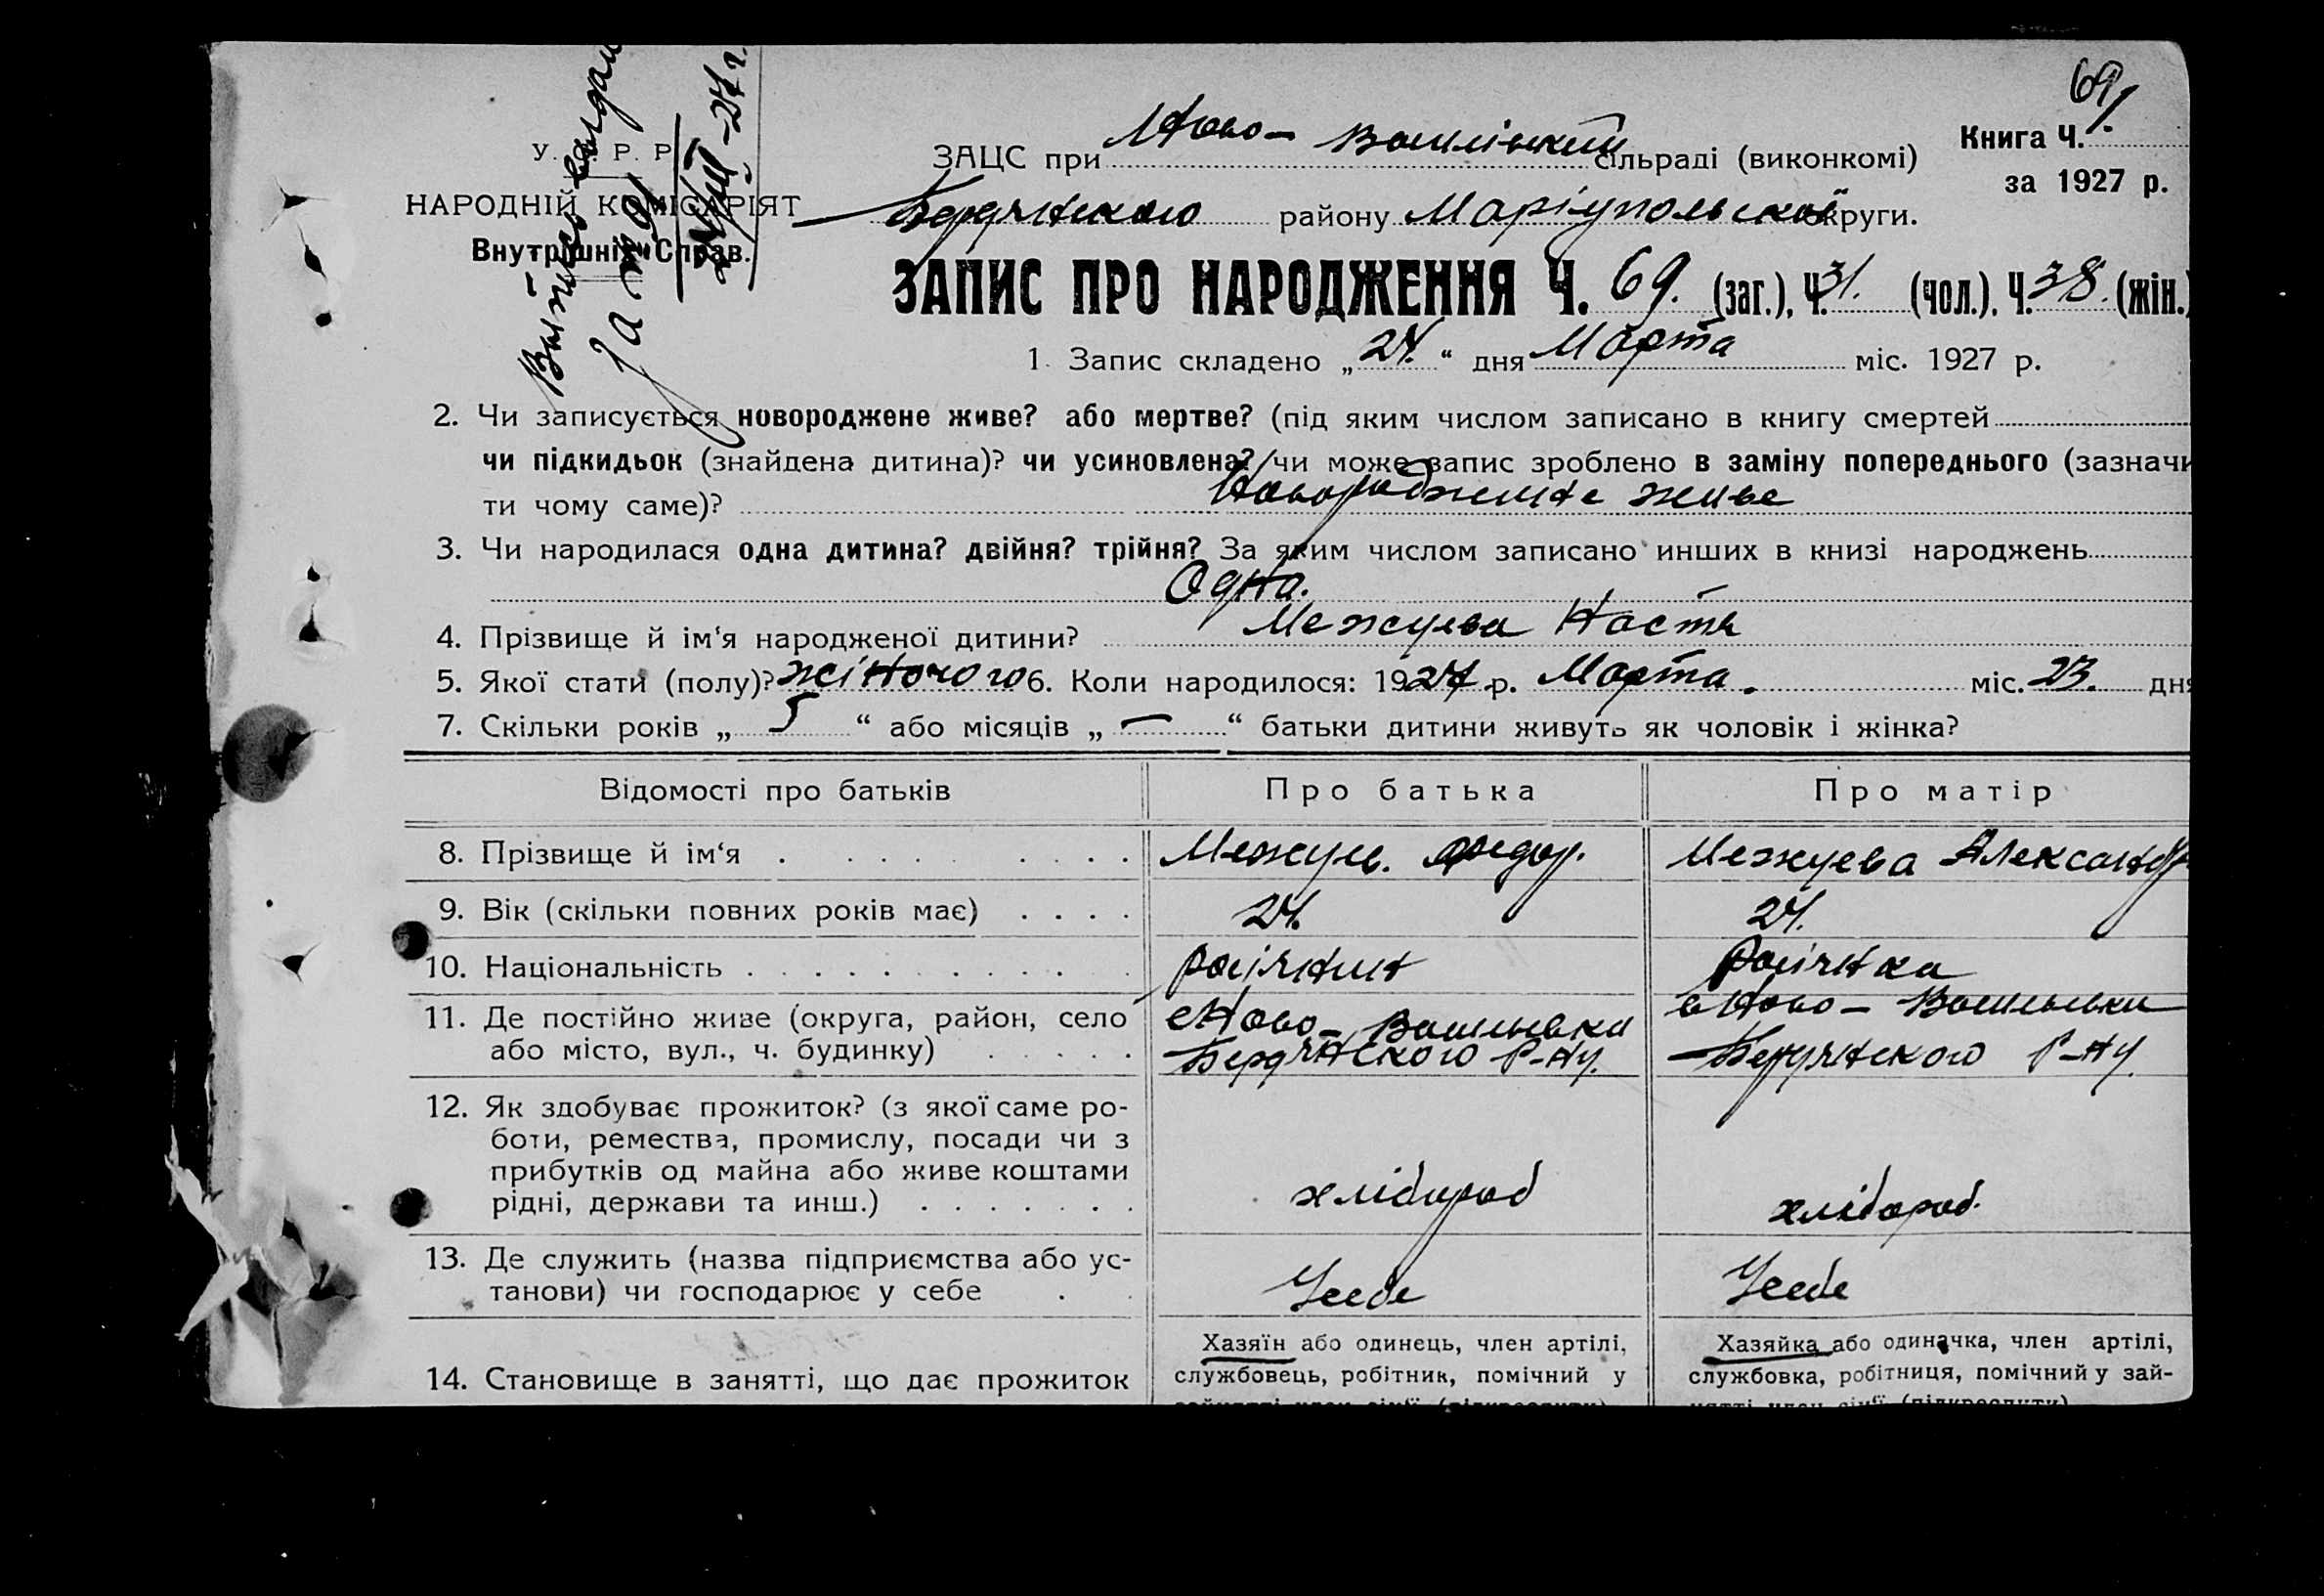 69
Книга Ч. 1.
за 1927 р.
У. С. Р. Р.
НАРОДНІЙ КОМІСАРІЯТ
Внутрішніх Справ.
Выпись выдан
за №
ЗАЦС при Ново-Василівкий сільраді (виконкомі)
Бердянского району Маріупольської округи.
ЗАПИС ПРО НАРОДЖЕННЯ Ч. 69. (заг.), Ч. 31. (чол.), Ч. 38. (жін.)
1. Запис складено „ 24. “ дня Марта міс. 1927 р.
2. Чи записується новороджене живе? або мертве? (під яким числом записано в книгу смертей
чи підкидьок (знайдена дитина)? чи усиновлена? чи може запис зроблено в заміну попереднього (зазначи
ти чому саме)? Новорожденне живе
3. Чи народилася одна дитина? двійня? трійня? За яким числом записано инших в книзі народжень
Одна.
4. Прізвище й ім‘я народженої дитини? Межуева Настя
5. Якої стати (полу)? жіночого 6. Коли народилося: 1927 р. Марта. міс. 23. дня
7. Скільки років „ 5 “ або місяців „ — “ батьки дитини живуть як чоловік і жінка?
Відомості про батьків Про батька Про матір
8. Прізвище й ім‘я Межуев. Федор. Межуева Александр
9. Вік (скільки повних років має) 24. 24.
10. Національність росіянин росіянка
11. Де постійно живе (округа, район, село Ново-Васильевки в Ново-Васильевки
або місто, вул., ч. будинку) Бердянского Р-ну. Бердянского Р-ну.
12. Як здобуває прожиток? (з якої саме ро-
боти, ремества, промислу, посади чи з
прибутків од майна або живе коштами
рідні, держави та инш.) хлібороб хлібороб.
13. Де служить (назва підприємства або ус-
танови) чи господарює у себе Усебе Усебе
Хазяїн або одинець, член артілі, Хазяйка або одиначка, член артілі,
14. Становище в занятті, що дає прожиток службовець, робітник, помічний у службовка, робітниця, помічний у зай-